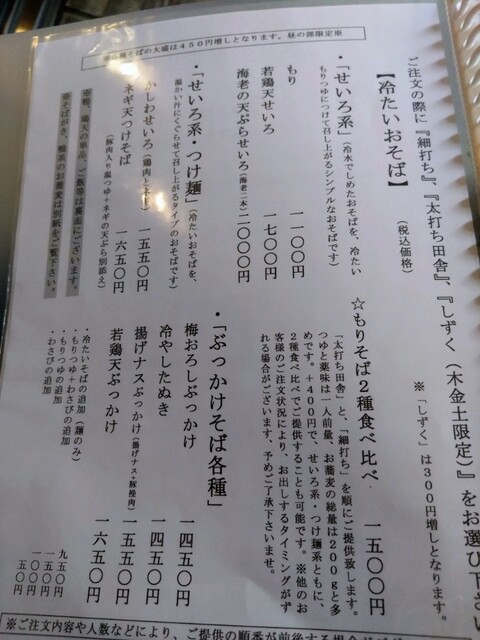 ご注文の際に『細打ち』、『太打ち田舎』、『しずく(木金土限定)』をお選び下さい
※「しずく」は300円増しとなります。
【冷たいおそば】
(税込価格)
・「せいろ系」(冷水でしめたおそばを、冷たい
もりつゆにつけて召し上がるシンプルなおそばです)
もり 一一〇〇円
若鶏天せいろ 一七〇〇円
海老の天ぷらせいろ(海老二本)二〇〇〇円
・「せいろ系・つけ麺」(冷たいおそばを、
温かい汁にくぐらせて召し上がるタイプのおそばです)
かしわせいろ(鶏肉とネギ) 一五五〇円
ネギ天つけそば 一六五〇円
(豚肉入り温つゆ+ネギの天ぷら別添え)
☆もりそば2種食べ比べ 一五〇〇円
「太打ち田舎」と、「細打ち」を順にご提供致します。
つゆと薬味は一人前量、お蕎麦の総量は200gと多
めです。+400円で、せいろ系・つけ麺系ともに、
2種食べ比べでご提供することも可能です。※他のお
客様のご注文状況により、お出しするタイミングがず
れる場合がございます、予めご了承下さいませ。
・「ぶっかけそば各種」
梅おろしぶっかけ 一四五〇円
冷やしたぬき 一四五〇円
揚げナスぶっかけ(揚げナス+豚挽肉) 一五五〇円
若鶏天ぶっかけ 一六五〇円
・冷たいそばの追加(麺のみ) 九五〇円
・もりつゆ+わさびの追加 一五〇円
・もりつゆの追加 一〇〇円
・わさびの追加 五〇円
そばの大盛は450円増しとなります。昼の部限定※
※ご注文内容や人数などにより、ご提供の順番が前後する場合が